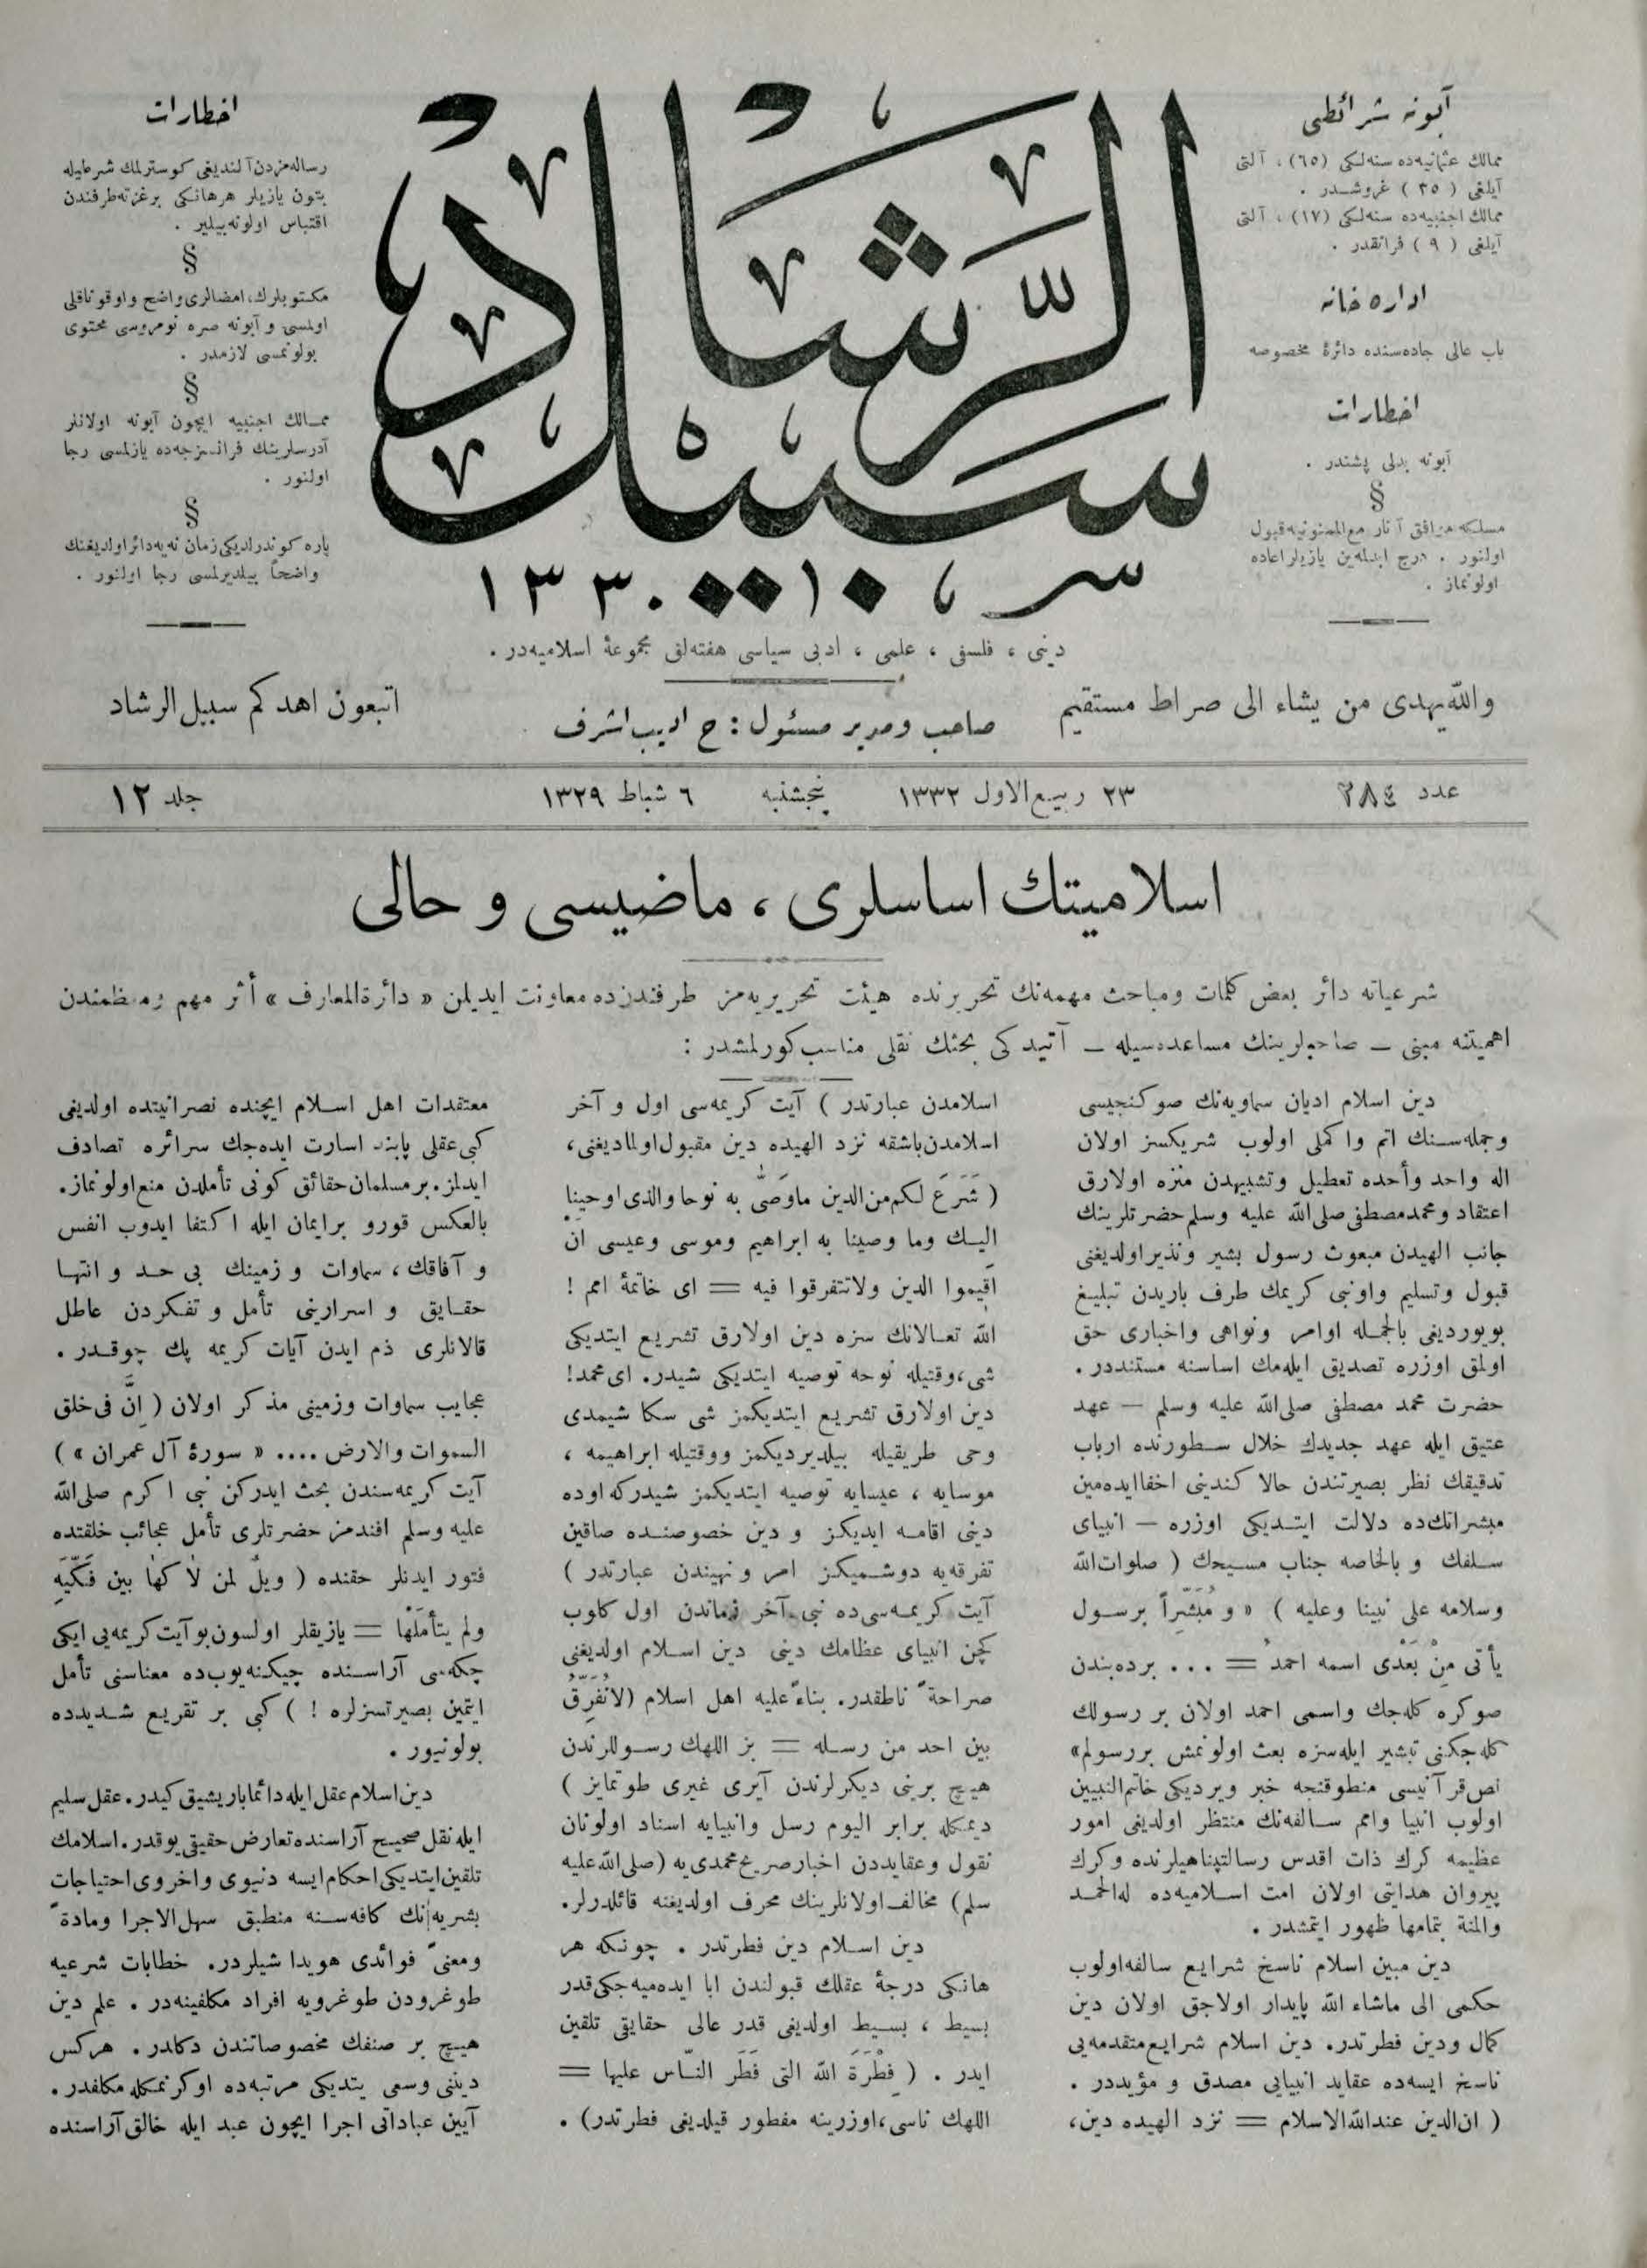 آبونه شرائطی
ممالك عثمانیه‌ده سنه‌لكی (٦٥) ، آلتی
آیلغی ( ٣٥ ) غروشـدر .
ممالك اجنبیه‌ده سنه‌لكی (١٧) ، آلتی
آیلغی ( ٩ ) فرانقدر .
اداره خانه
باب عالی جاده‌سنده دائرهٔ مخصوصه
اخطارات
آبونه بدلی پشندر .
§
مسلكه موافق آثار مع‌الممنونیه قبول
اولنور . درج ایدلمه‌ین یازیلر اعاده
اولونماز .
سبیل الرشاد
١٣٣٠
اخطارات
رساله‌مزدن آلندیغی كوسترلمك شرطیله
بتون یازیلر هرهانكی برغزته‌طرفندن
اقتباس اولونه‌بیلیر .
§
مكتوبلرك، امضالری واضح و اوقوناقلی
اولمسی و آبونه صره نومروسی محتوی
بولونمسی لازمدر .
§
ممـالك اجنبیه ایچون آبونه اولانلر
آدرسلرینك فرانسزجه‌ده یازلمسی رجا
اولنور .
§
پاره كوندرلدیكی زمان نه‌یه‌دائر اولدیغنك
واضحاً بیلدیرلمسی رجا اولنور .
دینی ، فلسفی ، علمی ، ادبی سیاسی هفته‌لق مجموعهٔ اسلامیه‌در .
والله یهدی من یشاء الی صراط مستقیم
صاحب ومدیر مسئول : ح اديب اشرف
اتبعون اهدكم سبیل الرشاد
عدد ٢٨٤
٢٣ ربیع‌الاول ١٣٣٢ پنجشنبه ٦ شباط ١٣٢٩
جلد ١٢
اسلامیتك اساسلری ، ماضیسی و حالی
شرعیاته دائر بعض كلمات ومباحث مهمه‌نك تحریرنده هیئت تحریریه‌مز طرفندن‌ده معاونت ایدیلن « دائرةالمعارف » أثر مهم ومنظمندن
اهمیتنه مبنی — صاحبلرینك مساعده‌سیله — آتیده‌كی بحثك نقلی مناسب كورلمشدر :
دین اسلام ادیان سماویه‌نك صوكنجیسی
وجمله‌سـنك اتم واكملی اولوب شریكسز اولان
اله واحد وأحده تعطیل وتشبیهدن منزه اولارق
اعتقاد ومحمدمصطفی صلی‌الله علیه وسلم حضرتلرینك
جانب الهیدن مبعوث رسول بشیر ونذیر اولدیغنی
قبول وتسلیم واونبی كریمك طرف باریدن تبلیـغ
بویوردیغی بالجمـله اوامر ونواهی واخباری حق
اولمق اوزره تصدیق ایله‌مك اساسنه مستنددر .
حضرت محمد مصطفی صلی‌الله علیه وسلم — عهد
عتیق ایله عهد جدیدك خلال سـطورنده ارباب
تدقیقك نظر بصیرتندن حالا كندینی اخفاایده‌مین
مبشراتك‌ده دلالت ایتـدیكی اوزره — انبیای
سـلفك و بالخاصه جناب مسـیحك ( صلوات‌الله
وسلامه علی نبینا وعلیه ) « و مُبَشِّراً برسـول
یأتی مِنْ بَعْدی اسمه احمدُ = ... برده بندن
صوكره كله‌جك واسمی احمد اولان بر رسولك
كله‌جكنی تبشیر ایله سزه بعث اولونمش بررسولم»
نص قرآنیسی منطوقنجه خبر ویردیكی خاتم‌النبیین
اولوب انبیا وامم سـالفه‌نك منتظر اولدیغی امور
عظیمه كرك ذات اقدس رسالتپناهیلرنده وكرك
پیروان هدایتی اولان امت اسـلامیه‌ده لله‌الحمـد
والمنة بتمامها ظهور ایتمشدر .
دین مبین اسلام ناسخ شرایع سالفه اولوب
حكمی الی ماشاء الله پایدار اولاجق اولان دین
كمال ودین فطرتدر. دین اسلام شرایع متقدمه‌یی
ناسخ ایسه‌ده عقاید انبیایی مصدق و مؤیددر .
( ان‌الدین عندالله‌الاسلام = نزد الهیده دین،
اسلامدن عبارتدر ) آیت كریمه‌سی اول و آخر
اسلامدن‌باشقه نزد الهیده دین مقبول اولمادیغنی،
( شَرَعَ لكم من‌الدین ماوَصّٰی به نوحا والذی اوحینا
الیـك وما وصینا به ابراهیم وموسی وعیسی ان
اقیموا الدین ولاتتفرقوا فیه = ای خاتمهٔ امم !
الله تعـالانك سزه دین اولارق تشریع ایتدیكی
شی،وقتیله نوحه توصیه ایتدیكی شیدر. ای محمد!
دین اولارق تشریـع ایتدیكمز شی سكا شیمدی
وحی طریقیله بیلدیردیكمز ووقتیله ابراهیمه ،
موسایه ، عیسایه توصیه ایتدیكمز شیدركه اوده
دینی اقامـه ایدیكز و دین خصوصنـده صاقین
تفرقه‌یه دوشـمیكز امر ونهیندن عبارتدر )
آیت كریمـه‌سی‌ده نبی آخر زماندن اول كلوب
كچن انبیای عظامك دینی دین اسـلام اولدیغنی
صراحةً ناطقدر. بناءً علیه اهل اسلام (لانُفَرِّقُ
بین احد من رسـله = بز اللهك رسـوللرندن
هیـچ برینی دیكرلرندن آیری غیری طوتمایز )
دیمكله برابر الیوم رسل وانبیایه اسناد اولونان
نقول وعقایددن اخبار صریح محمدی‌یه (صلی‌الله‌علیه
سلم) مخالف‌اولانلرینك محرف اولدیغنه قائلدرلر.
دین اسـلام دین فطرتدر . چونكه هر
هانكی درجهٔ عقلك قبولندن ابا ایده‌میه‌جكی‌قدر
بسیط ، بسـیط اولدیغی قدر عالی حقایقی تلقین
ایدر . ( فِطْرَةَ الله التی فَطَر النّـاس علیها =
اللهك ناسی،اوزرینه مفطور قیلدیغی فطرتدر) .
معتقدات اهل اسـلام ایچنده نصرانیتده اولدیغی
كبی عقلی پابند اسارت ایده‌جك سرائره تصادف
ایدلمز. بر مسلمان حقائق كونی تأملدن منع اولونماز.
بالعكس قورو بر ایمان ایله اكتفا ایدوب انفس
و آفاقك ، سماوات و زمینك بی حـد و انتهـا
حقـایق و اسرارینی تأمل و تفـكردن عاطل
قالانلری ذم ایدن آیات كریمه پك چوقـدر .
عجایب سماوات وزمینی مذكر اولان ( اِنَّ فی خلق
السموات والارض .... « سورهٔ آل عمران » )
آیت كریمه‌سندن بحث ایدركن نبی اكرم صلی‌الله
علیه وسلم افندمز حضرتلری تأمل عجائب خلقتده
فتور ایدنلر حقنده ( ویلٌ لمن لاٰكهاٰ بین فَكَّیْهِ
ولم یتأملْها = یازیقلر اولسون بو آیت كریمه‌یی ایكی
چكه‌سی آراسـنده چیكنه‌یوب‌ده معناسنی تأمل
ایتمین بصیرتسزلره ! ) كبی بر تقریع شـدیدده
بولونیور .
دین اسلام عقل ایله دائما باریشیق كیدر. عقل سلیم
ایله نقل صحیح آراسنده تعارض حقیقی یوقدر. اسلامك
تلقین ایتدیكی احكام ایسه دنیوی واخروی احتیاجات
بشریه‌نك كافه‌سـنه منطبق سهل‌الاجرا ومادةً
ومعنیً فوائدی هویدا شیلردر. خطابات شرعیه
طوغرودن طوغرویه افراد مكلفینه‌در . علم دین
هیـچ بر صنفك مخصوصاتندن دكلدر . هركس
دیننی وسعی یتدیكی مرتبه‌ده اوكرنمكله مكلفدر .
آیین عباداتی اجرا ایچون عبد ایله خالق آراسنده